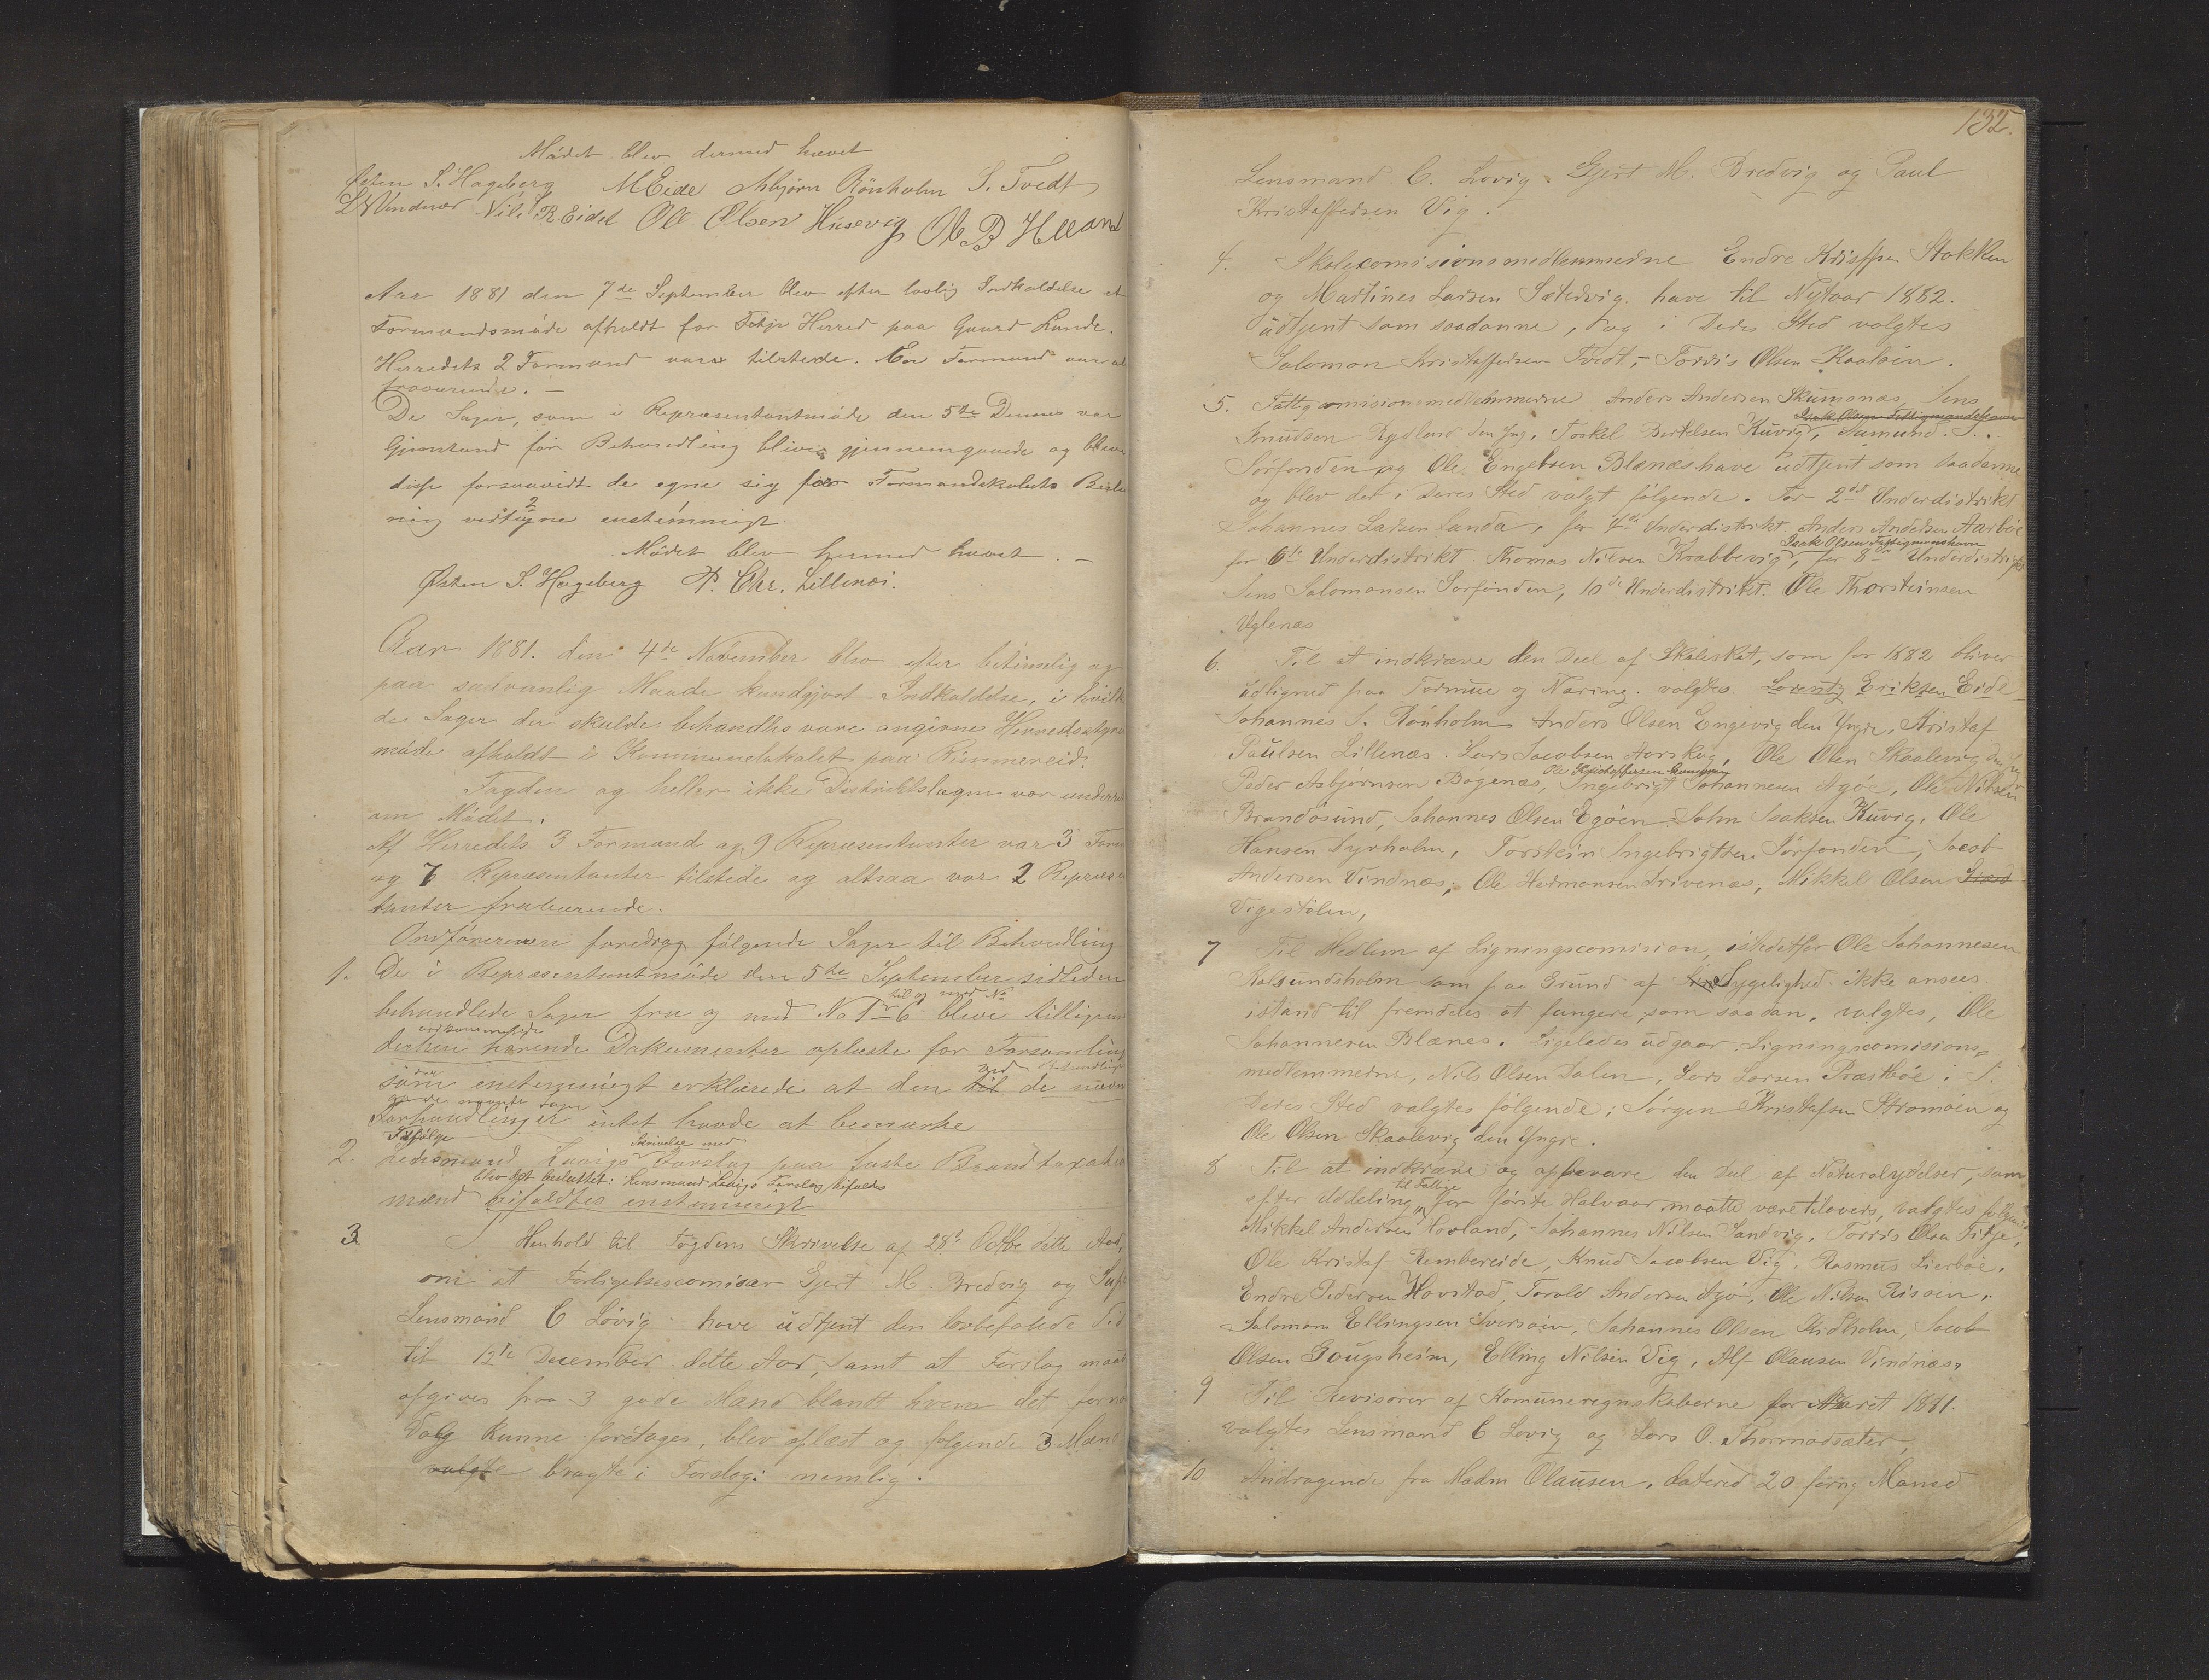 Mødet blev dermed hævet
Østen S. Hageberg M Eide Asbjørn Rönholm S. Tvedt
Nils R Eide Ole Olsen Husevig
Aar 1881 den 7de September blev efter lovlig Indkaldelse et
Formandsmøde afholdt for Fitje Herred paa Gaard Lunde.
Herredets 2 Formænd vare tilstede. En Formand var
fraværende. —
De Sager, som i Repræsentantmøde den 5te Dennes var
Gjenstand for Behandling blive gjennemgaaede og blev
disse forsaavidt de egne sig for Formandskabets
vedtagne enstemmigt.
Mødet blev hermed hævet. —
Østen S. Hageberg P. Chr. Lillenæs.
Aar 1881. den 4de November blev efter betimelig og
paa sædvanlig Maade kundgjort Indkaldelse, i hvilk
de Sager der skulde behandles vare angivne Herredsstyre
møde afholdt i Kommunelokalet paa Rimmereid.
Fogden og heller ikke Distriktslægen var underre
om Mødet.
Af Herredets 3 Formænd og 9 Repræsentanter var 3 Form
og 7 Repræsentanter tilstede og altsaa var 2 Repræse
tanter fraværende.
Ordføreren foredrog følgende Sager til Behandling
1. De i Repræsentantmøde den 5te September sidleden
til og med No
behandlede Sager fra og med No 1 6 bleve tilligem
vedkommende
derhen hørende Dokumenter oplæste for Forsamling
ved Behandling
som enstemmigt erklærede at den til de nævn
nævnte Sager
Forhandlinger intet havde at bemærke
Ifølge Skrivelse med
2. Lensmand Løvigs Forslag paa faste Brandtaxatio
blev det besluttet: Lensmand Løvigs Forslag bifaldes
mænd bifaldtes enstemmigt
3. I Henhold til Fogdens Skrivelse af 28de Octbr dette Aar,
om at Forligelsescomisær Gjert M. Bredvig og Sup
Lensmand C Løvig have udtjent den lovbefalede Tid
til 12te December dette Aar, samt at Forslag maat
afgives paa 3 gode Mænd blandt hvem det forn
Valg kunne foretages, blev oplæst og følgende 3 Mænd
valgte bragte i Forslag: nemlig.
132.
Lensmand C. Lovig. Gjert M. Bredvig og Paul
Kristoffersen Vig.
4. Skolecomisionsmedlemmerne Endre Stokken
og Martines Larsen Sætrevig. have til Nytaar 1882.
udtjent som saadanne, og i Deres Sted valgtes
Salomon Kristoffersen Tvedt, – Torris Olsen Kaaløen.
5. Fattigcomisionsmedlemmerne Anders Andersen Skumsnæs, Jens
Isak Olsen Fattigmandshavn
Knudsen Rydland den Yng. Torkel Bertelsen Kuvig, Aamund. S.
Sørfonden og Ole Engelsen Blænæs have udtjent som saadanne
og blev der i Deres Sted valgt følgende. For 2det Underdistrikt
Johannes Larsen Landa, for 4de Underdistrikt Anders Andersen Aarbøe
Isak Olsen Fattigmanshavn
for 6te Underdistrikt. Thomas Nilsen Krabbevig, for 8de Underdistrikt
Jens Salomonsen Sørfonden, 10de Underdistrikt. Ole Thorsteinsen
Uglenæs
6. Til at indkræve den Deel af Skoleskat, som for 1882 bliver
udlignet paa Formue og Næring. valgtes. Lorentz Eriksen Eide
Johannes S. Rönholm Anders Olsen Engevig den Yngre, Kristof
Paulsen Lillenæs. Lars Jacobsen Aarskog, Ole Olsen Skaalevig den Yng
Ole Kristoffersen
Peder Asbjørnsen Bogenæs, Ingebrigt Johannesen Agøe, Ole Nilsen
Brandøsund, Johannes Olsen Egøen John Isaksen Kuvig, Ole
Hansen Dyrholm, Torstein Ingebrigtsen Sørfonden, Jacob
Andersen Vindnæs, Ole Hermansen Drivenæs, Mikkel Olsen
Vigestølen,
7 Til Medlem af Ligningscomision, istedetfor Ole Johannesen
Kalsundsholm som paa Grund af Sygelighed ikke ansees
istand til fremdeles at fungere som saadan, valgtes, Ole
Johannesen Blænes. Ligeledes udgaar Ligningscomisions=
medlemmerne, Nils Olsen Dalen, Lars Larsen Præstbøe i
Deres Sted valgtes følgende; Jørgen Kristofsen Stromøen og
Ole Olsen Skaalevig den Yngre.
8 Til at indkræve og opbevare den Del af Naturalydelser, som
til Fattige
efter Uddeling for første Halvaar maatte være tilovers, valgtes følgende
Mikkel Andersen Hovland, – Johannes Nilsen Sandvig, Torris Olsen Fitje,
Ole Kristof Rembereide, Knud Jacobsen Vig. Rasmus Lierbøe.
Endre Pedersen Hovstad, Torald Andersen Agø, Ole Nilsen Risøen,
Salomon Ellingsen Iversøen, Johannes Olsen Skidholm, Jacob
Olsen Gougsheim, Elling Nilsen Vig, Alf Olausen Vindnæs,
9 Til Revisorer af Komuneregnskaberne for Aaret 1881.
valgtes Lensmand C Lovig og Lars O. Thormodsæter,
10 Andragende fra Madm Olausen, datered 20 forrig Maaned